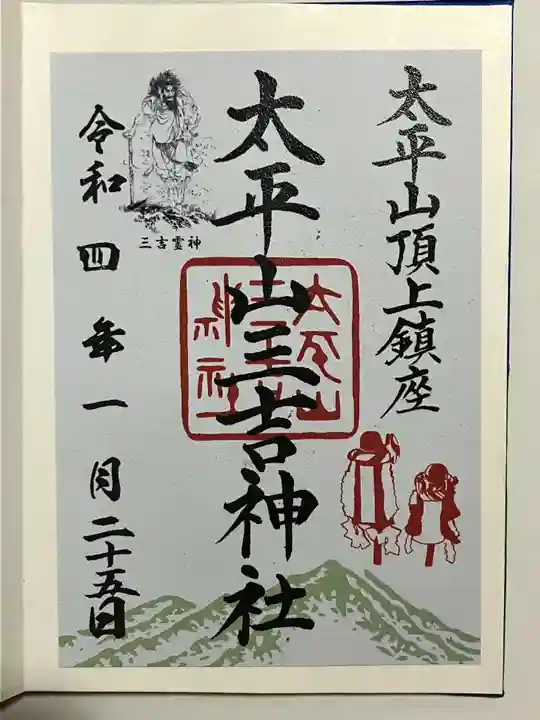 太平山頂上鎮座
太平山三吉神社
太平山
三吉
神社
三吉霊神
令和四年一月二十五日